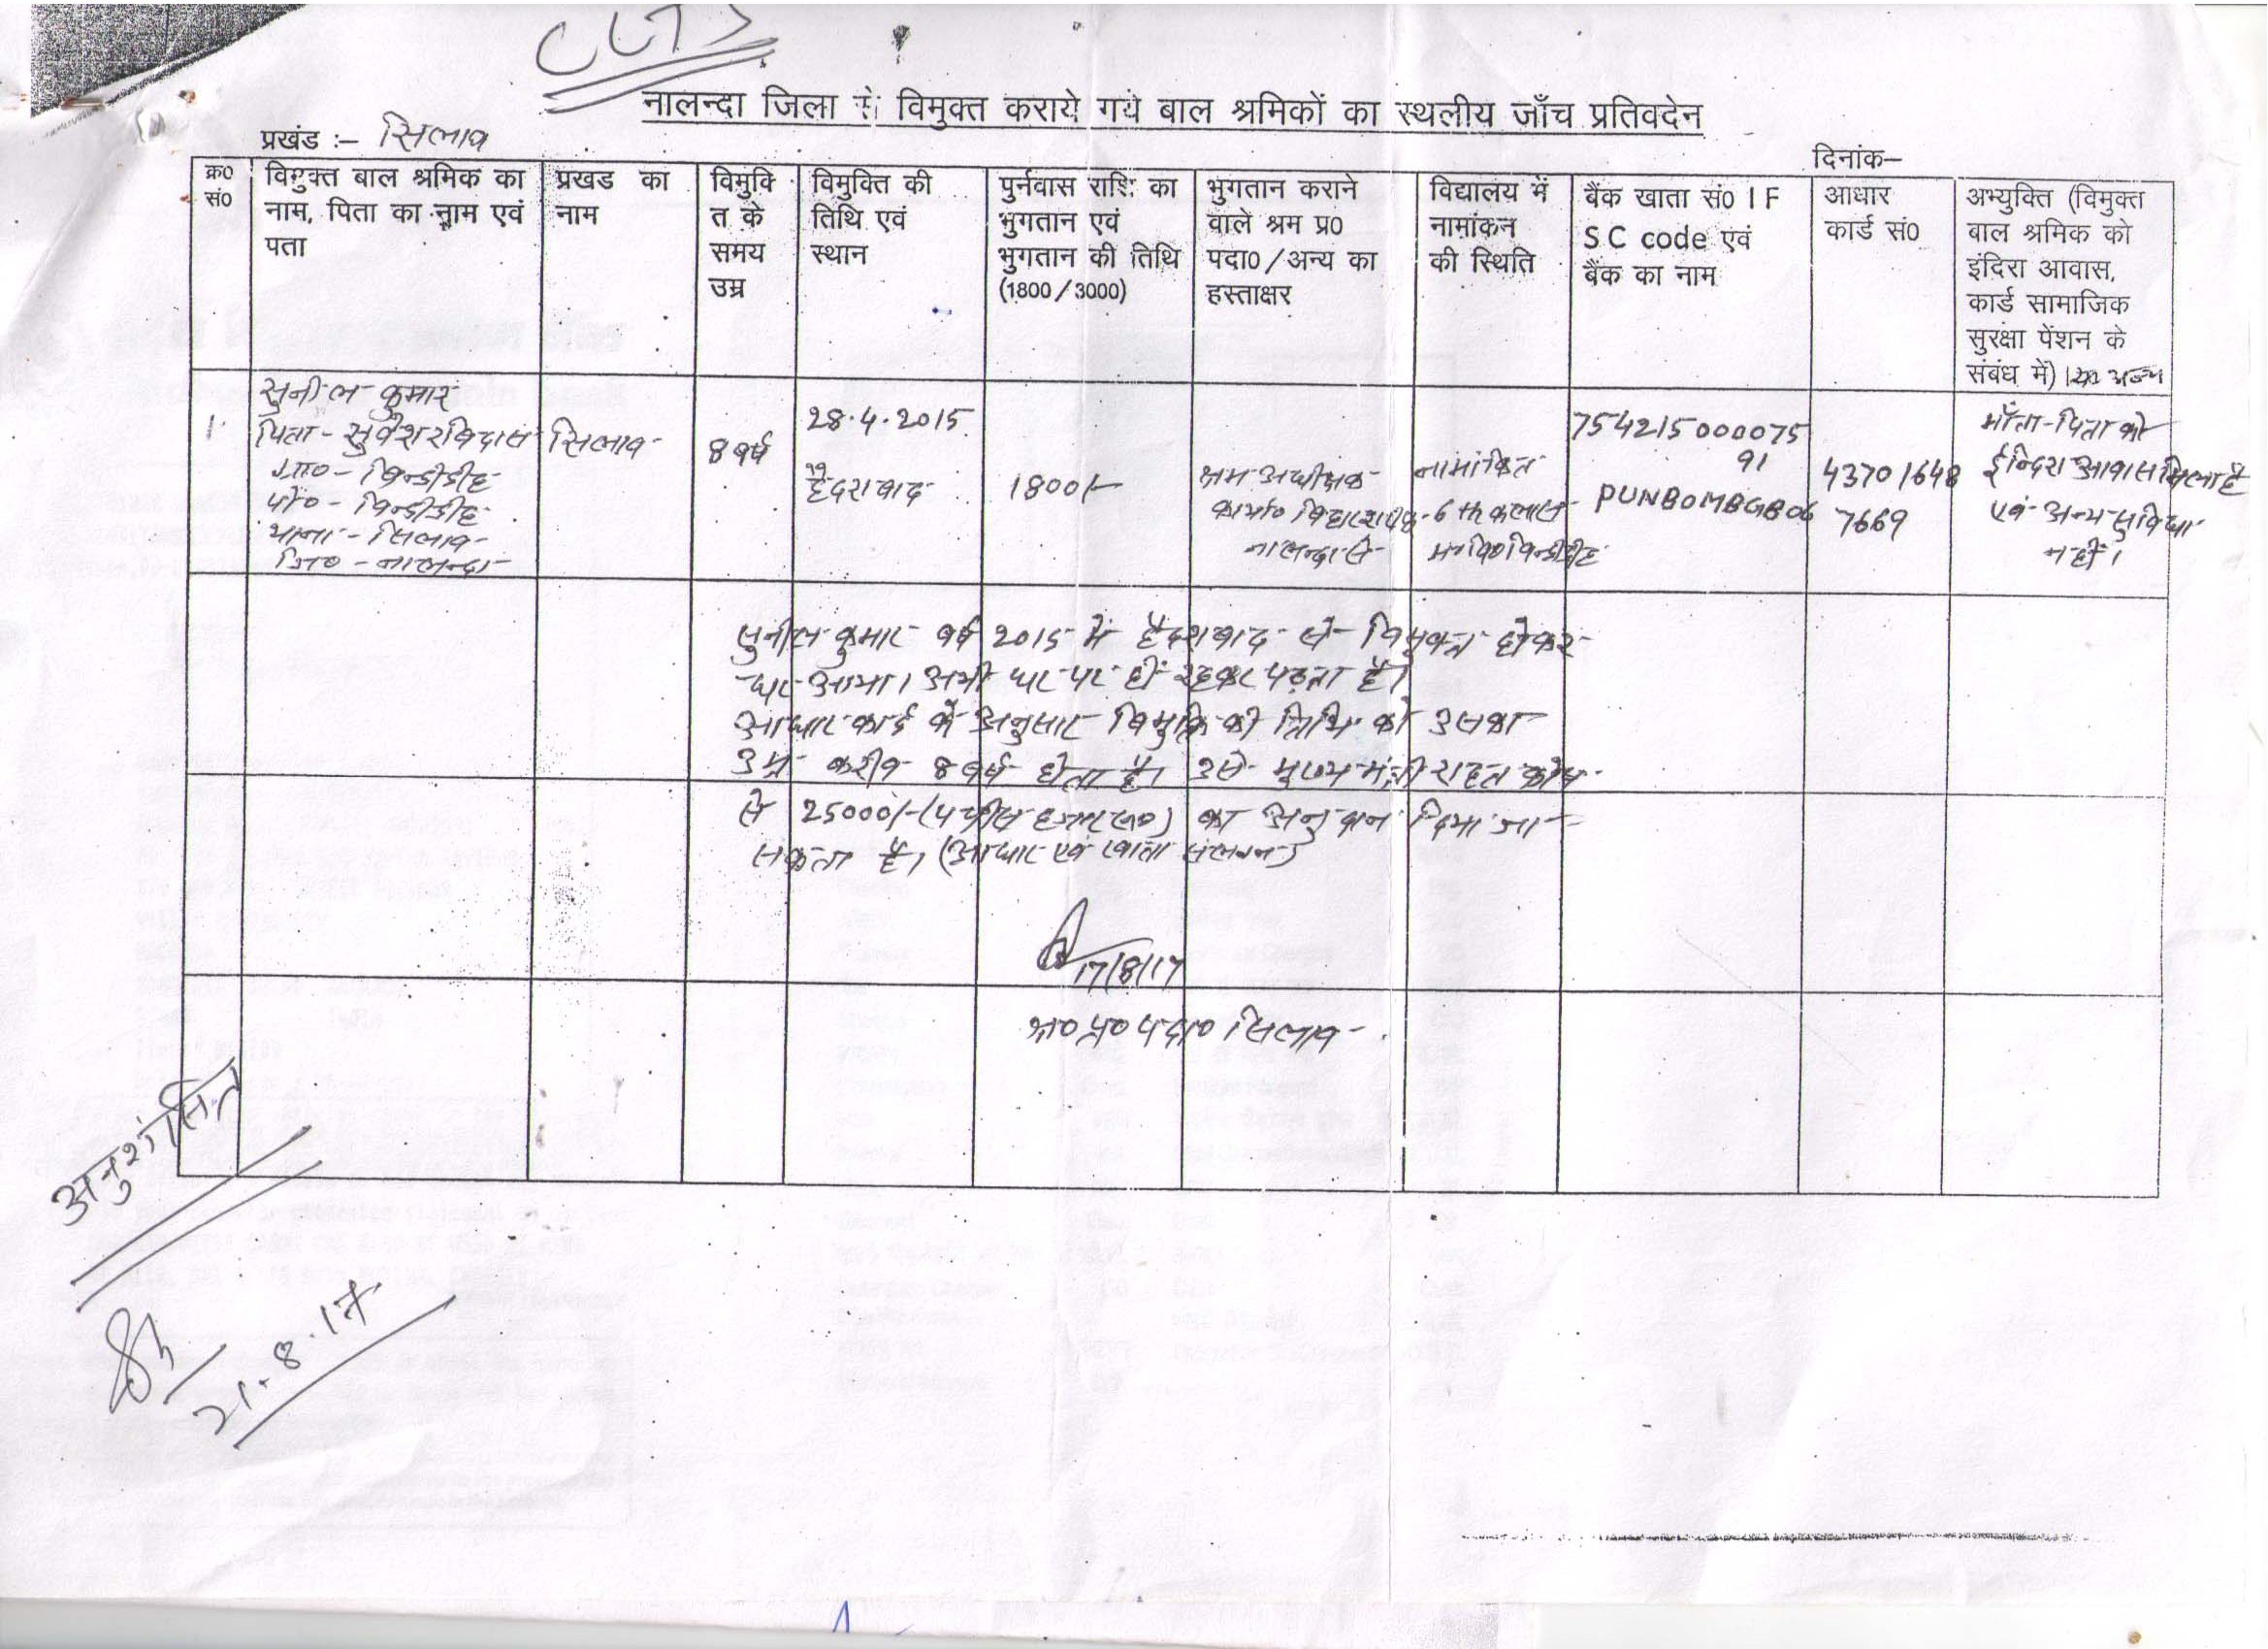 नालन्दा जिला से विमुक्त कराये गये बाल श्रमिकों का स्थलीय जाँच प्रतिवदेन
प्रखंड :– सिलाव
दिनांक–
क्र०
सं०
विमुक्त बाल श्रमिक का
नाम, पिता का नाम एवं
पता
प्रखड का
नाम
विमुक्ति
त के
समय
उम्र
विमुक्ति की
तिथि एवं
स्थान
पुर्नवास राशि का
भुगतान एवं
भुगतान की तिथि
(1800/3000)
भुगतान कराने
वाले श्रम प्र०
पदा०/अन्य का
हस्ताक्षर
विद्यालय में
नामांकन
की स्थिति
बैंक खाता सं० I F
S C code एवं
बैंक का नाम
आधार
कार्ड सं०
अभ्युक्ति (विमुक्त
बाल श्रमिक को
इंदिरा आवास,
कार्ड सामाजिक
सुरक्षा पेंशन के
संबंध में)
1.
सुनील कुमार
पिता - सुरेश रविदास
ग्रा० - विन्डीडीह
पो० - विन्डीडीह
थाना - सिलाव
जि० - नालन्दा
सिलाव
8 वर्ष
28.4.2015
हैदराबाद
1800/-
श्रम अधीक्षक
कार्या० बिहारशरीफ
नालन्दा से
नामांकित
6 th क्लास
म० वि० विन्डीडीह
754215000075
91
PUNB0MBGB06
43701648
7669
माँता-पिता को
ईन्दिरा आवास मिला है
एवं अन्य सुविधा
नहीं।
सुनील कुमार वर्ष 2015 में हैदराबाद से विमुक्त होकर
घर आया। अभी घर पर ही रहकर पढ़ता है।
आधार कार्ड के अनुसार विमुक्ति की तिथि को उसका
उम्र करीब 8 वर्ष होता है। उसे मुख्य मंत्री राहत कोष
से 25000/- (पचीस हजार रू०) का अनुदान दिया जा
सकता है। (आधार एवं खाता संलग्न)
17/8/17
श्र० प्र० पदा० सिलाव
अनुशंसित
21.8.17